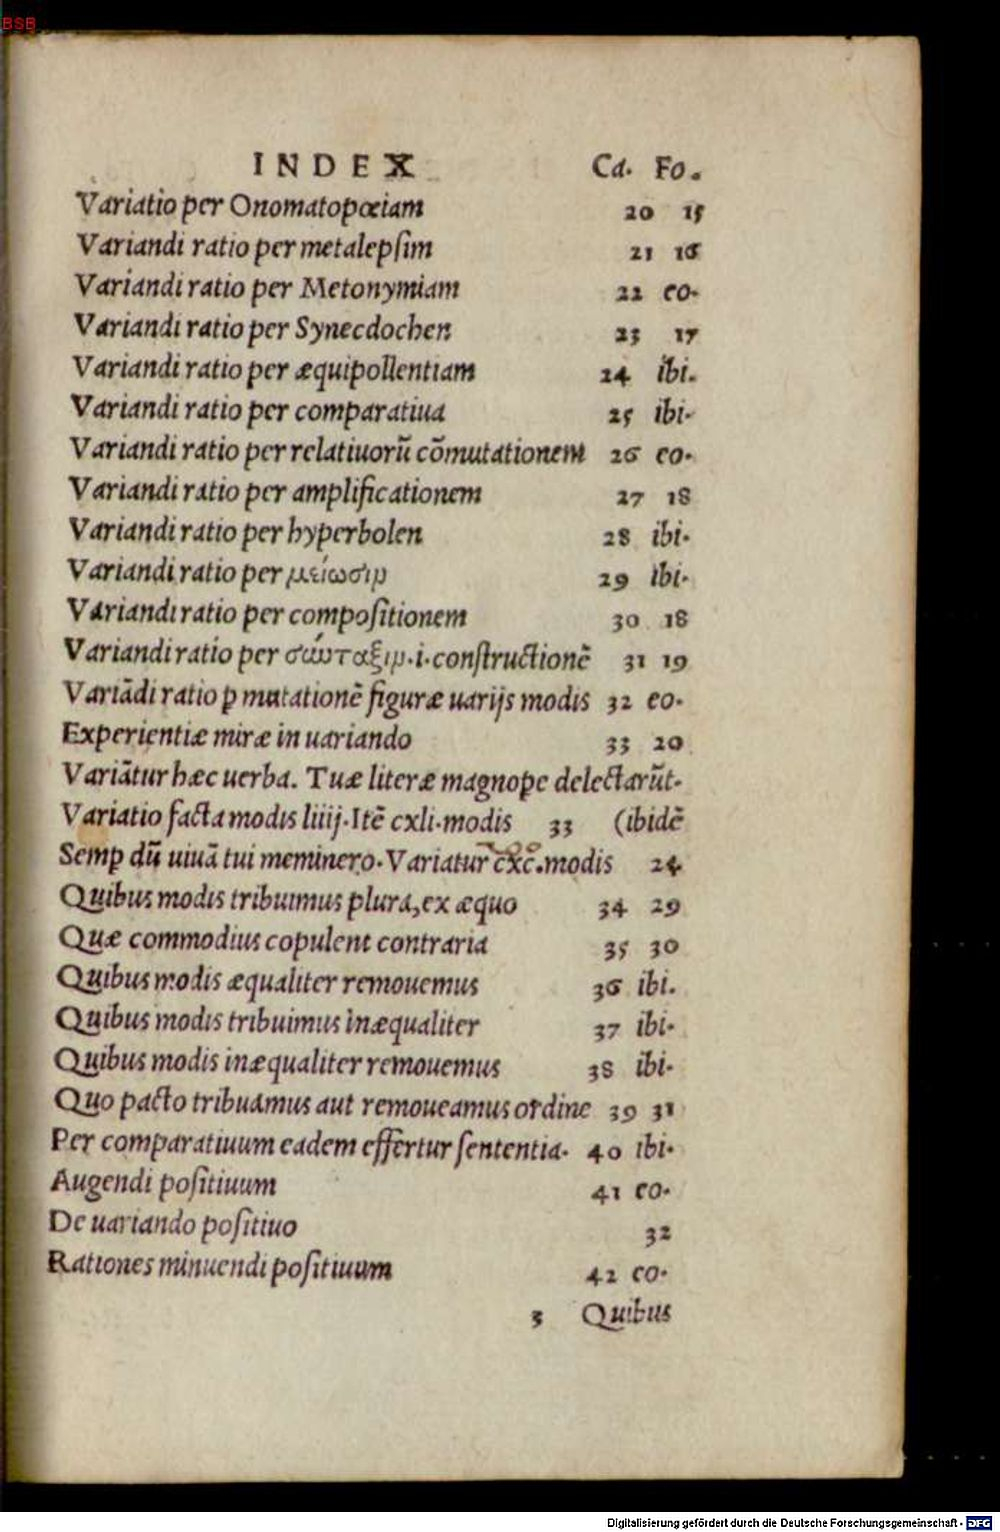 BSB
INDEX Ca. Fo.
Variatio per Onomatopœiam 20 15
Variandi ratio per metalepsim 21 16
Variandi ratio per Metonymiam 22 eo.
Variandi ratio per Synecdochen 23 17
Variandi ratio per æquipollentiam 24 ibi.
Variandi ratio per comparatiua 25 ibi.
Variandi ratio per relatiuorũ cõmutationem 26 eo.
Variandi ratio per amplificationem 27 18
Variandi ratio per hyperbolen 28 ibi.
Variandi ratio per μείωσιν 29 ibi.
Variandi ratio per compositionem 30 18
Variandi ratio per σύνταξιν.i.constructionẽ 31 19
Variãdi ratio ꝑ mutationẽ figuræ uarijs modis 32 eo.
Experientiæ miræ in uariando 33 20
Variãtur hæc uerba. Tuæ literæ magnope delectarũt.
Variatio facta modis liiij.Itẽ cxli.modis 33 (ibidẽ
Semꝑ dũ uiuã tui meminero.Variatur cxc.modis 24
Quibus modis tribuimus plura,ex æquo 34 29
Quæ commodius copulent contraria 35 30
Quibus modis æqualiter remouemus 36 ibi.
Quibus modis tribuimus inæqualiter 37 ibi.
Quibus modis inæqualiter remouemus 38 ibi.
Quo pacto tribuamus aut remoueamus ordine 39 31
Per comparatiuum eadem effertur sententia. 40 ibi.
Augendi positiuum 41 eo.
De uariando positiuo 32
Rationes minuendi positiuum 42 eo.
3 Quibus
Digitalisierung gefördert durch die Deutsche Forschungsgemeinschaft - DFG